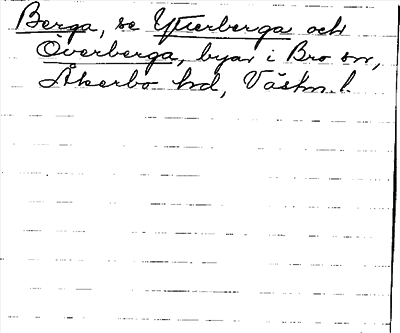 Berga, se Ytterberga och
Överberga, byar i Bro sn,
Åkerbo hd, Västm. l.